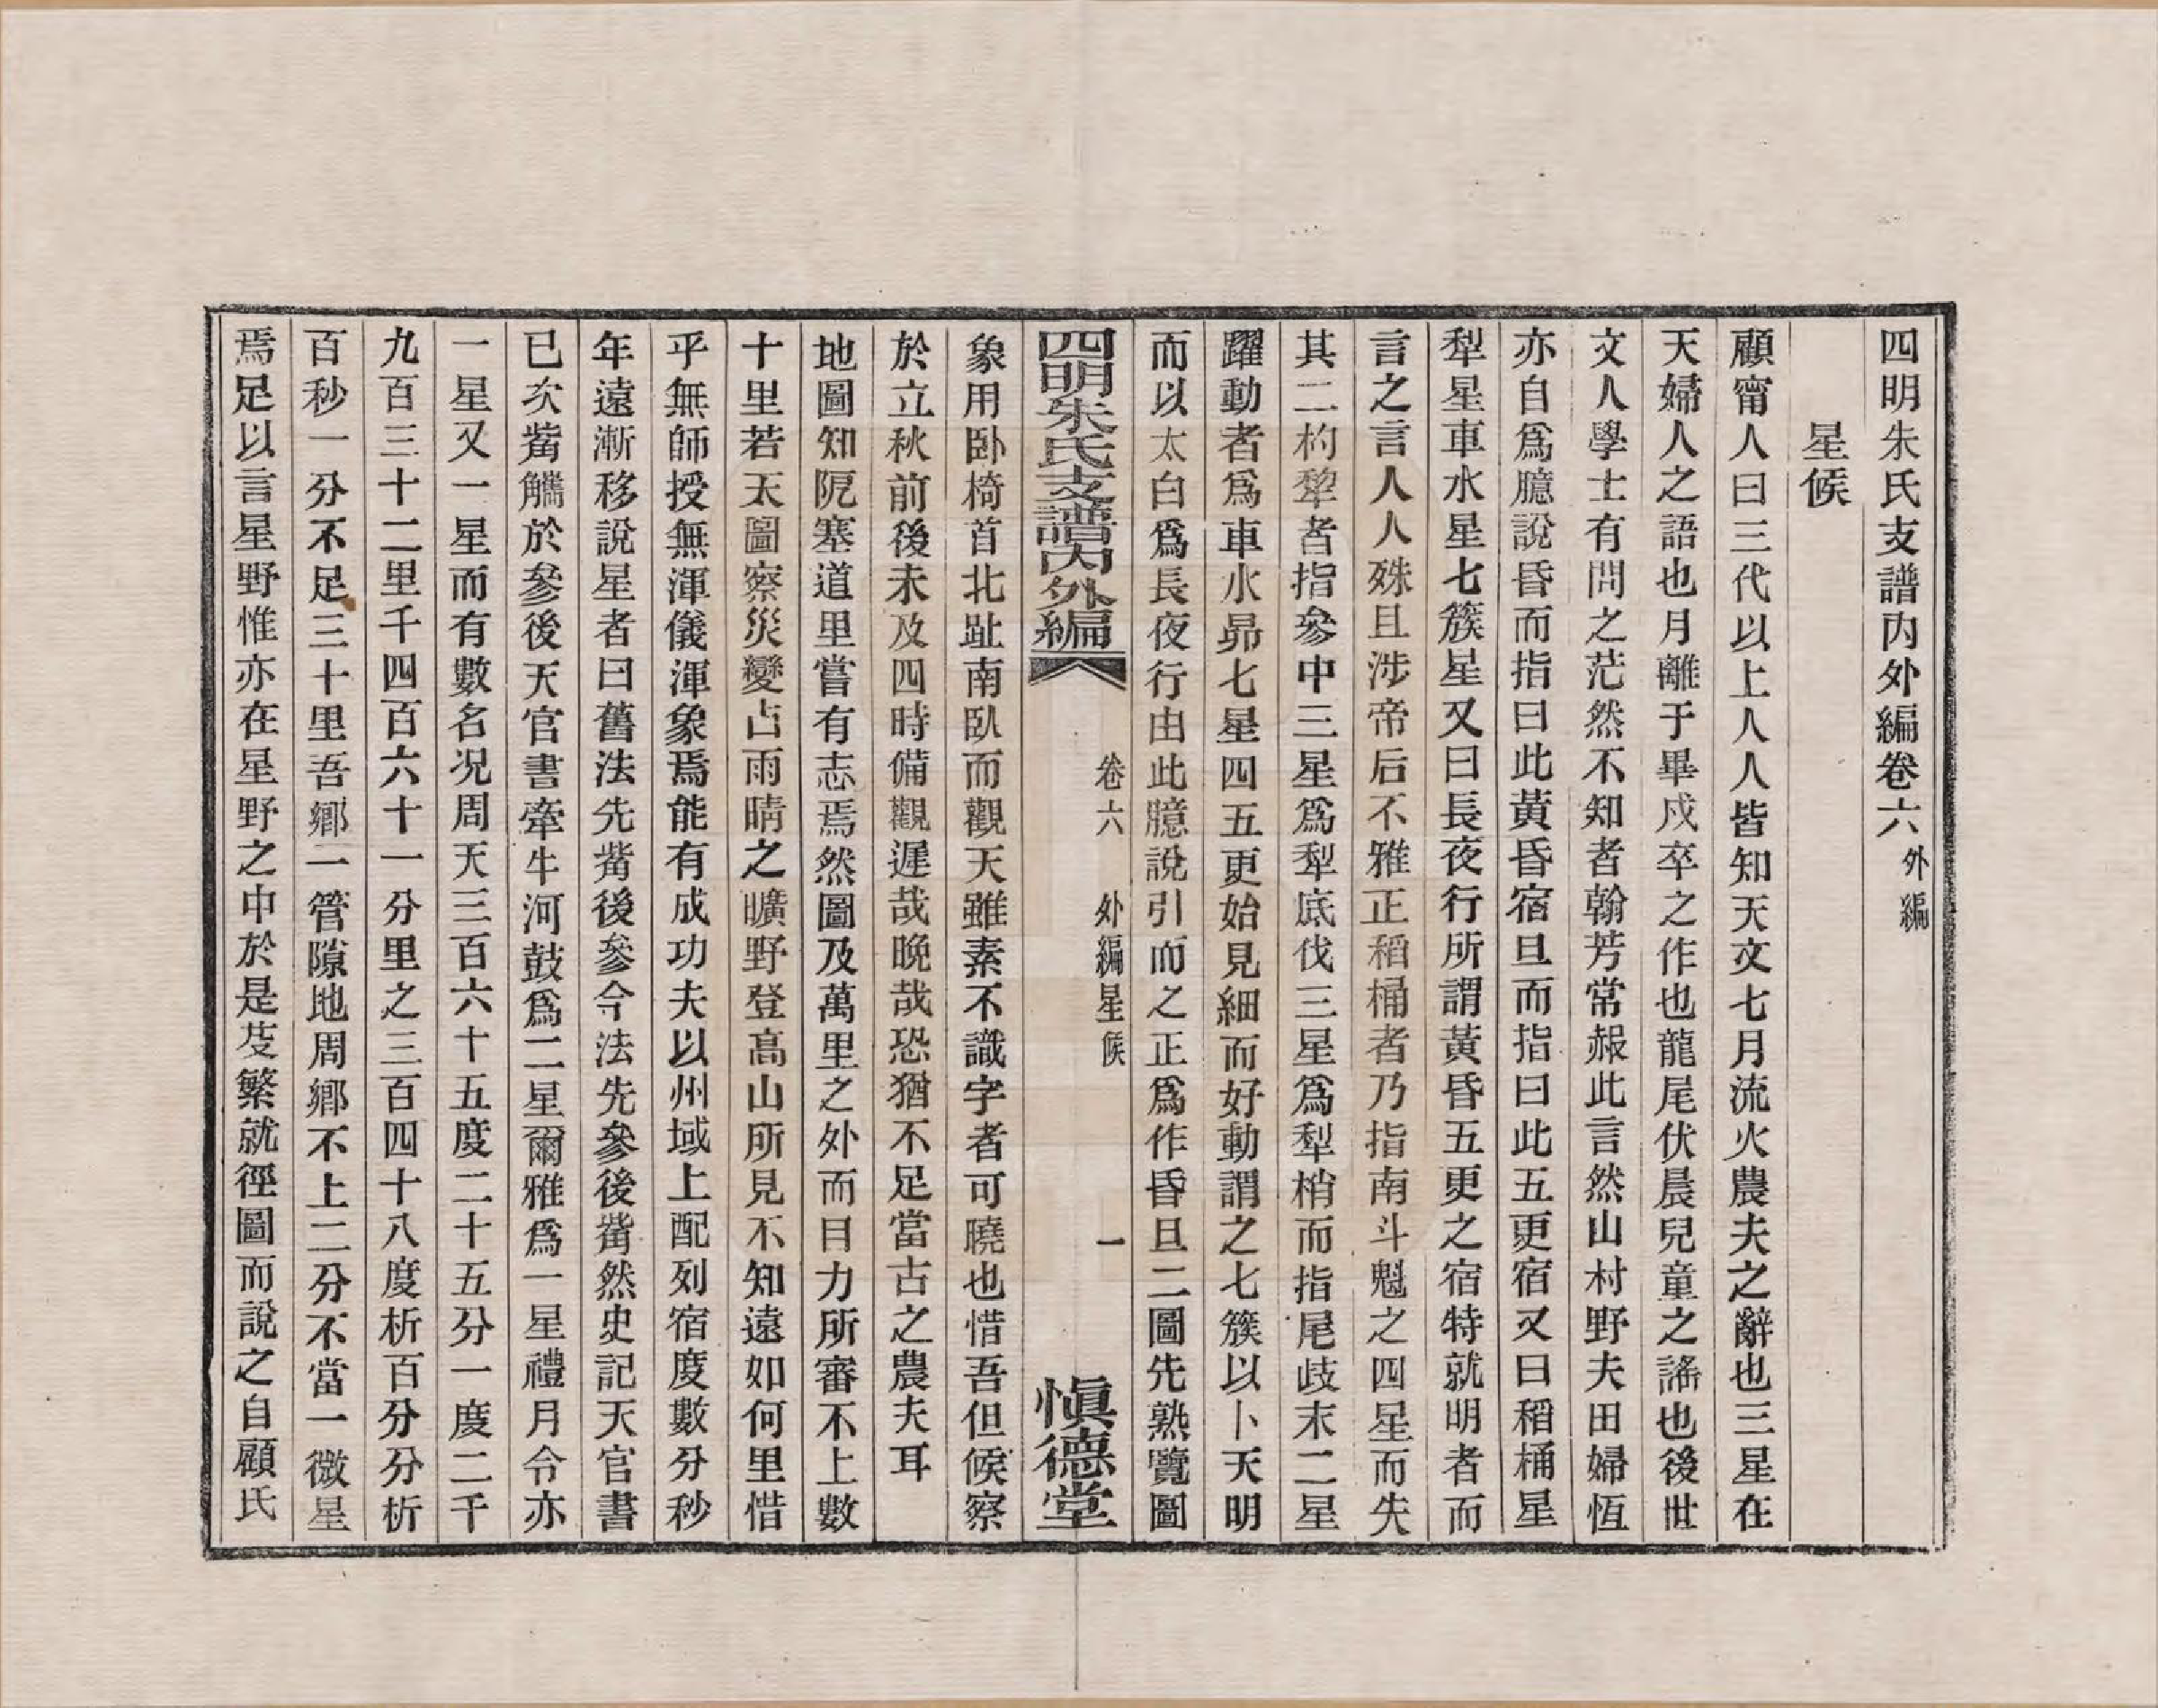 四明朱氏支譜內外編卷六外編
星候
顧甯人曰三代以上人人皆知天文七月流火農夫之辭也三星在
天婦人之語也月離于畢戍卒之作也龍尾伏晨兒童之謠也後世
文人學士有問之茫然不知者翰芳常赧此言然山村野夫田婦恆
亦自爲臆說昏而指曰此黃昏宿旦而指曰此五更宿又曰稻桶星
犁星車水星七簇星又曰長夜行所謂黃昏五更之宿特就明者而
言之言人人殊且涉帝后不雅正稻桶者乃指南斗魁之四星而失
其二杓犂者指參中三星爲犁底伐三星爲犁梢而指尾歧末二星
躍動者爲車水昴七星四五更始見細而好動謂之七簇以卜天明
而以太白爲長夜行由此臆說引而之正爲作昏旦二圖先熟覽圖
四明朱氏支譜內外編
卷六
外編星候
一
愼德堂
象用卧椅首北趾南臥而觀天雖素不識字者可曉也惜吾但候察
於立秋前後未及四時備觀遲哉晚哉恐猶不足當古之農夫耳
地圖知阨塞道里嘗有志焉然圖及萬里之外而目力所審不上數
十里若天圖察災變占雨晴之曠野登高山所見不知遠如何里惜
乎無師授無渾儀渾象焉能有成功夫以州域上配列宿度數分秒
年遠漸移說星者曰舊法先觜後參今法先參後觜然史記天官書
已次觜觿於參後天官書牽牛河鼓爲二星爾雅爲一星禮月令亦
一星又一星而有數名况周天三百六十五度二十五分一度二千
九百三十二里千四百六十一分里之三百四十八度析百分分析
百秒一分不足三十里吾鄉一管隙地周鄉不上二分不當一微星
焉足以言星野惟亦在星野之中於是芟繁就徑圖而說之自顧氏